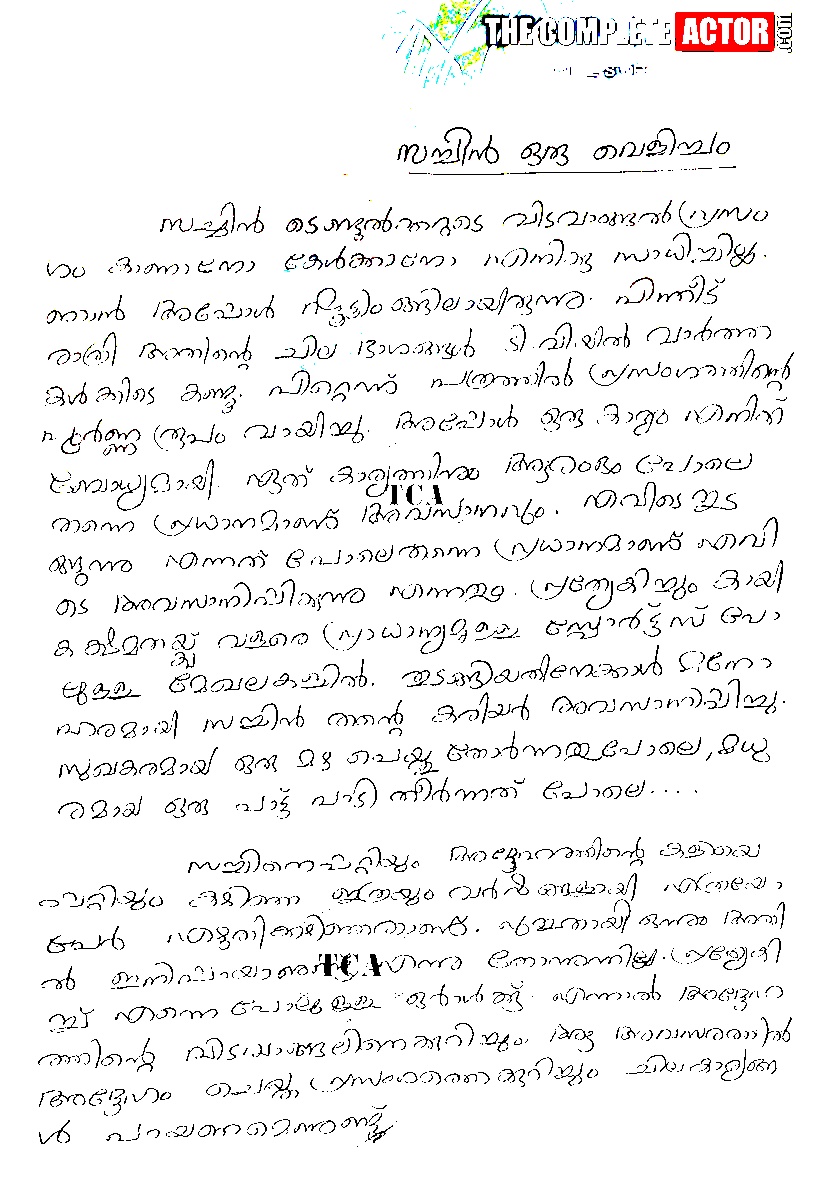 THE COMPLETE ACTOR .COM
സച്ചിൻ ഒരു വെളിച്ചം
സച്ചിൻ ടെണ്ടുൽക്കറുടെ വിടവാങ്ങൽ പ്രസം
ഗം കാണാനോ കേൾക്കാനോ എനിക്കു സാധിച്ചില്ല.
ഞാൻ അപ്പോൾ ഷൂട്ടിംങ്ങിലായിരുന്നു. പിന്നീട്
രാത്രി അതിന്റെ ചില ഭാഗങ്ങൾ ടി.വി.യിൽ വാർത്ത
കൾക്കിടെ കണ്ടു. പിറ്റെന്ന് പത്രത്തിൽ പ്രസംഗത്തിന്റെ
പൂർണ്ണ രൂപം വായിച്ചു. അപ്പോൾ ഒരു കാര്യം എനിക്ക്
ബോധ്യമായി. ഏത് കാര്യത്തിന്റേയും ആരംഭം പോലെ
TCA
തന്നെ പ്രധാനമാണ് അവസാനവും. എവിടെ തുട
ങ്ങുന്നു എന്നത് പോലെതന്നെ പ്രധാനമാണ് എവി
ടെ അവസാനിപ്പിക്കുന്നു എന്നതും. പ്രത്യേകിച്ചും കായി
കക്ഷമതയ്ക്ക് വളരെ പ്രാധാന്യമുള്ള സ്പോർട്ട്സ് പോ
ലുള്ള മേഖലകളിൽ. തുടങ്ങിയതിനേക്കാൾ മനോ
ഹരമായി സച്ചിൻ തന്റെ കരിയർ അവസാനിപ്പിച്ചു.
സുഖകരമായ ഒരു മഴ പെയ്തു തോർന്നതുപോലെ, മധു
രമായ ഒരു പാട്ട് പാടി തീർന്നത് പോലെ....
സച്ചിനെപ്പറ്റിയും അദ്ദേഹത്തിന്റെ കളിയെ
പറ്റിയും കഴിഞ്ഞ ഇത്രയും വർഷങ്ങളായി എത്രയോ
പേർ എഴുതിക്കഴിഞ്ഞതാണ്. പുതുതായി ഒന്നും അതി
ൽ ഇനിപ്പറയാനുണ്ടെന്നു തോന്നുന്നില്ല. പ്രത്യേകി
TCA
ച്ച് എന്നെ പോലുള്ള ഒരാൾക്ക്. എന്നാൽ അദ്ദേഹ
ത്തിന്റെ വിടവാങ്ങലിനെക്കുറിച്ചും, ആ അവസരത്തിൽ
അദ്ദേഹം ചെയ്ത പ്രസംഗത്തെക്കുറിച്ചും ചില കാര്യങ്ങ
ൾ പറയണമെന്നുണ്ട്